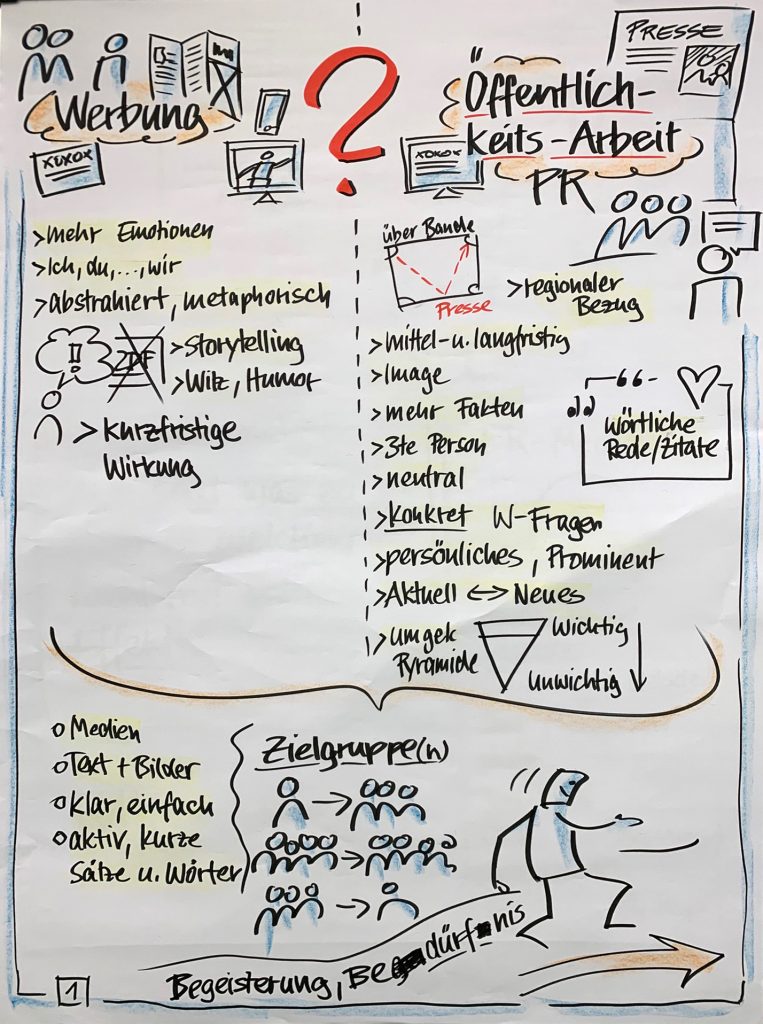 Werbung
XOXOX
?
PRESSE
Öffentlich-
keits-Arbeit
PR
XOXOX
>mehr Emotionen
>Ich, du,..., wir
>abstrahiert, metaphorisch
!!
ZDF
>Storytelling
>Witz, Humor
>kurzfristige
Wirkung
über Bande
Presse
>regionaler
Bezug
>mittel-u. langfristig
>Image
>mehr Fakten
>3te Person
>neutral
>konkret W-Fragen
>persönliches, Prominent
>Aktuell <-> Neues
>umgek
Pyramide
Wichtig
Unwichtig
wörtliche
Rede/Zitate
o Medien
o Text + Bilder
o klar, einfach
o aktiv, kurze
Sätze u. Wörter
Zielgruppe(n)
Begeisterung, Bedürfnis
1